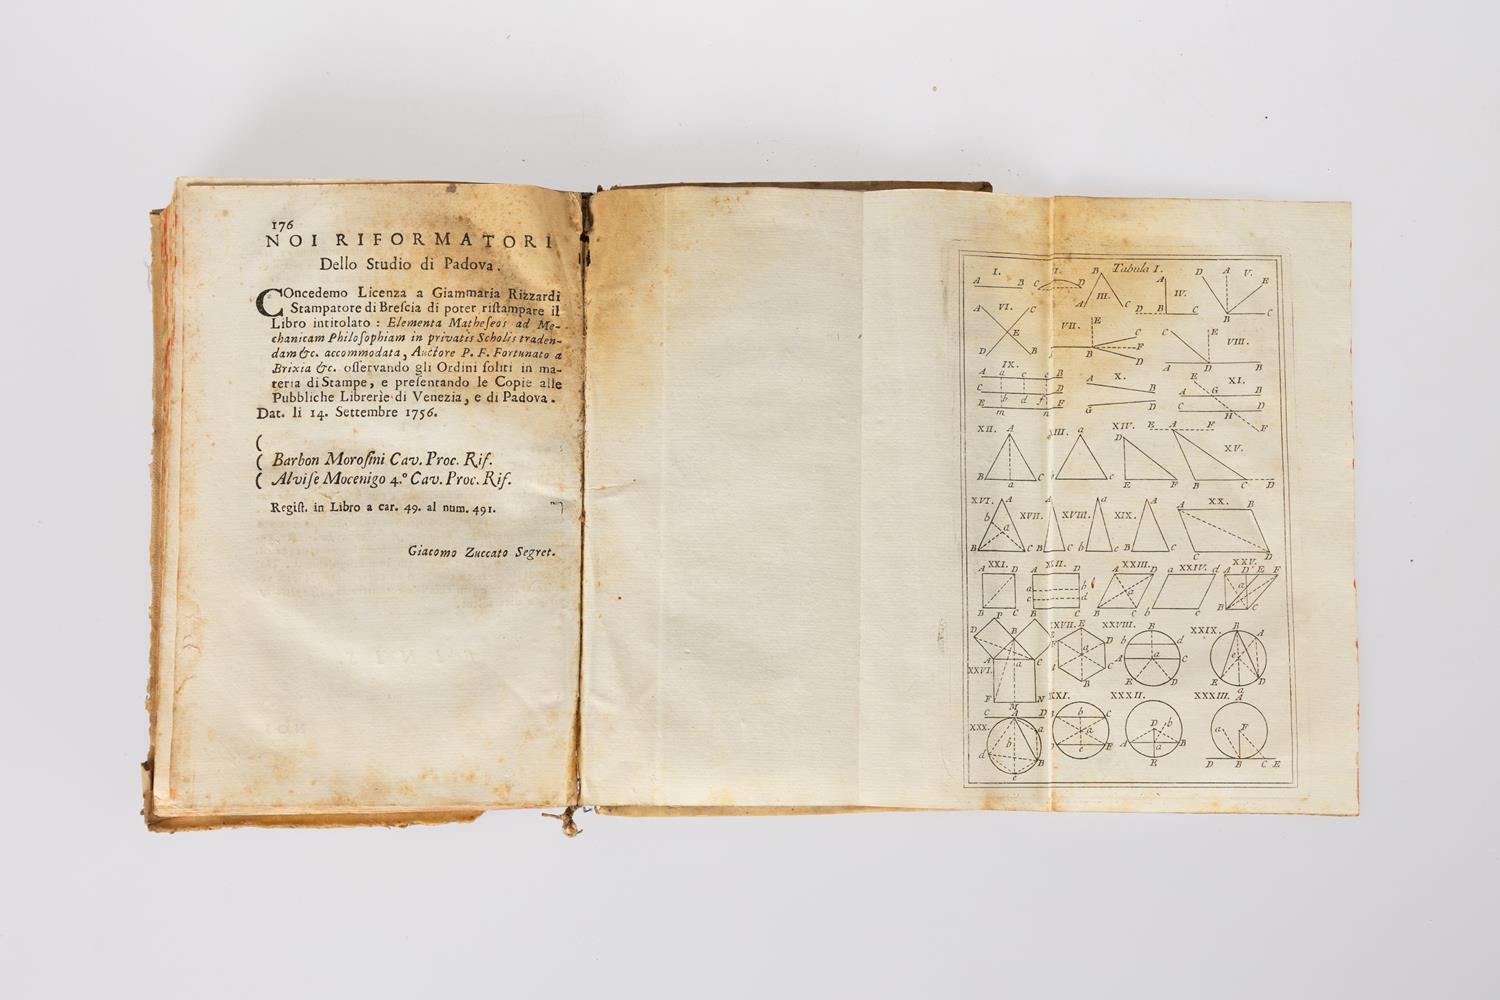 176
NOI RIFORMATORI
Dello Studio di Padova.
COncedemo Licenza a Giammaria Rizzardi
Stampatore di Breſcia di poter riſtampare il
Libro intitolato : Elementa Matheſeos ad Me-
chanicam Philoſophiam in privatis Scholis traden-
dam &c. accommodata, Auctore P. F. Fortunato a
Brixia &c. oſſervando gli Ordini ſoliti in ma-
teria di Stampe, e preſentando le Copie alle
Pubbliche Librerie di Venezia, e di Padova.
Dat. li 14. Settembre 1756.
(
( Barbon Moroſini Cav. Proc. Rif.
( Alviſe Mocenigo 4.° Cav. Proc. Rif.
Regiſt. in Libro a car. 49. al num. 491.
Giacomo Zuccato Segret.
Tabula I.
I. III. IV. V.
A B C D B A C A D B C D A E B C
VI. VII. VIII.
A C E D B E C F B D C E A D B
IX. X. XI.
A a c e B A B E A G B
C b d f D G D C H D
E m n F F
XII. XIV. XV.
A a D E A F
B a C b c E F B C D
XVI. XVII. XVIII. XIX. XX.
A b a B C A B C a b c A B C A B C D
XXI. XXIII. XXIV. XXV.
A D B C A D a b c d B C A D a B C a d b c A D E F a B C
XXVI. XXVII. XXVIII. XXIX.
P D B A a C F M N E D a C B B b d A a C E D B A e E D a
XXX. XXXII. XXXIII.
C A D a b d B e b C a e F D b A a B E A a F D B C E